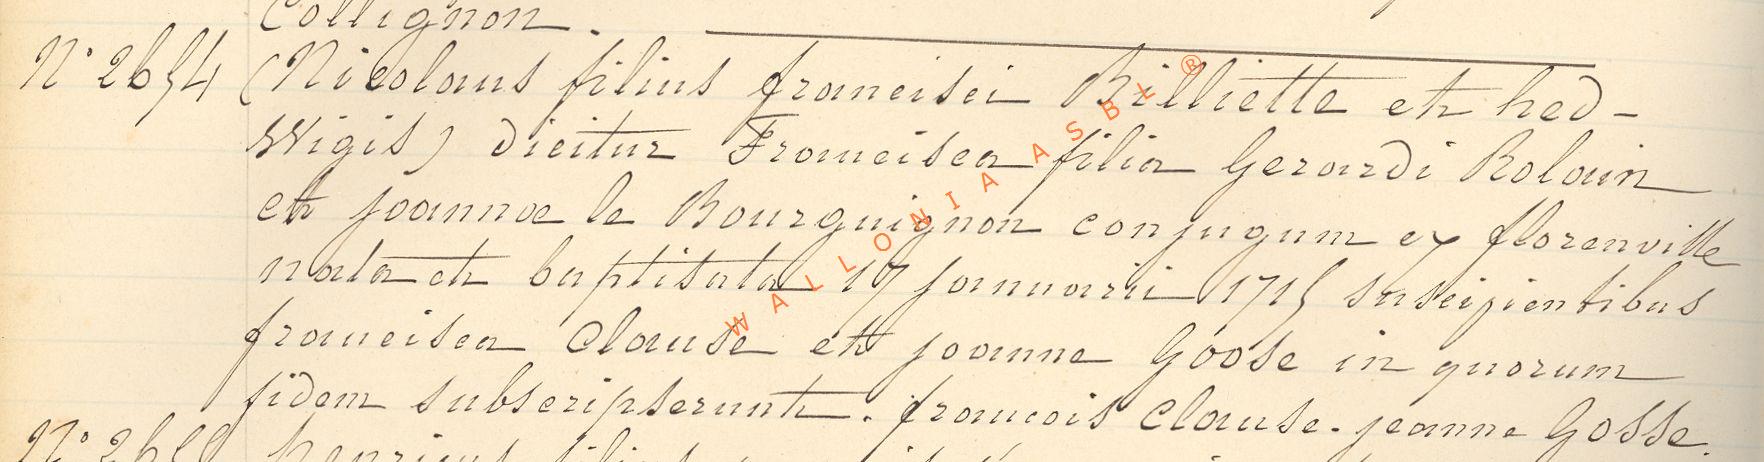 Collignon.
N° 2654 (Nicolaus filius francisci Billiette et hed-
Wigis) dicitur Francisca filia Gerardi Rolain
et joannae le Bourguignon conjugum ex florenville
nata et baptisata 17 januarii 1715 suscipientibus
francisca Clause et joanna Goose in quorum
fidem subscripserunt. francois Clause. jeanne Gosse.
N° 265
henricus filius
WALLONIA ASBL ®